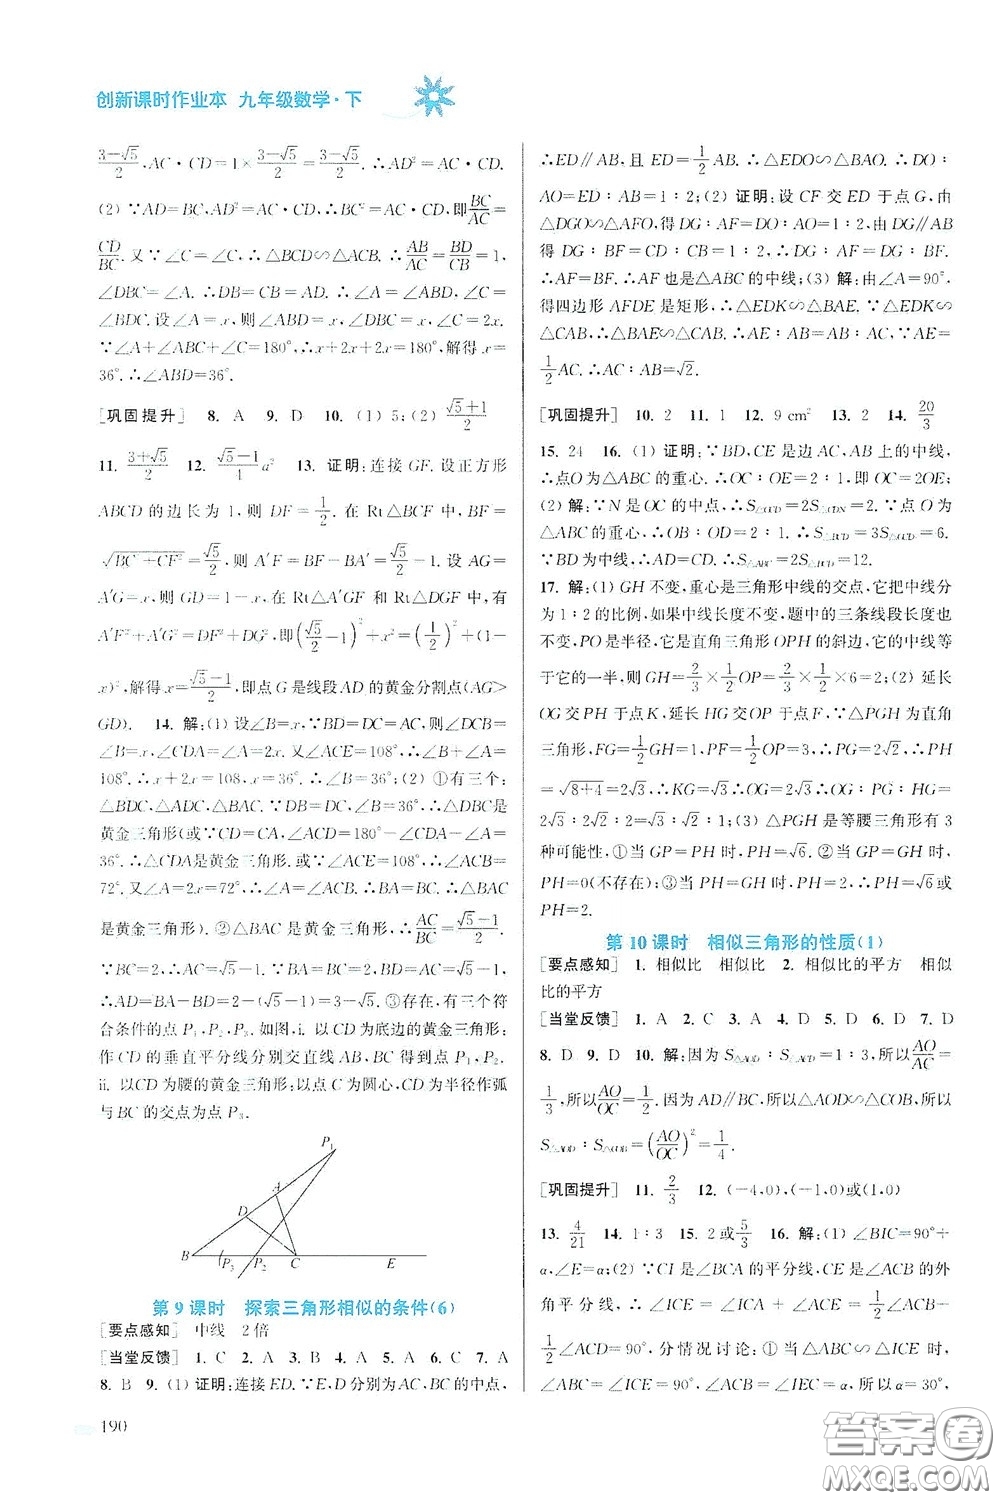 创新课时作业本 九年级数学·下
(3-√5)/2,AC·CD=1×(3-√5)/2=(3-√5)/2.∴AD²=AC·CD.
(2)∵AD=BC,AD²=AC·CD,∴BC²=AC·CD,即BC/AC=
CD/BC.又∵∠C=∠C,∴△BCD∽△ACB.∴AB/AC=BD/CB=1,
∠DBC=∠A.∴DB=CB=AD.∴∠A=∠ABD,∠C=
∠BDC.设∠A=x,则∠ABD=x,∠DBC=x,∠C=2x.
∵∠A+∠ABC+∠C=180°,∴x+2x+2x=180°,解得x=
36°.∴∠ABD=36°.
[巩固提升] 8. A 9. D 10. (1)5;(2)(√5+1)/2
11. (3+√5)/2 12. (√5-1)/4 a² 13. 证明:连接GF.设正方形
ABCD的边长为1,则DF=1/2.在Rt△BCF中,BF=
√(BC²+CF²)=√5/2,则A′F=BF-BA′=√5/2-1.设AG=
A′G=x,则GD=1-x,在Rt△A′GF和Rt△DGF中,有
A′F²+A′G²=DF²+DG²,即(√5/2-1)²+x²=(1/2)²+(1-
x)²,解得x=(√5-1)/2,即点G是线段AD的黄金分割点(AG>
GD). 14. 解:(1)设∠B=x,∵BD=DC=AC,则∠DCB=
∠B=x,∠CDA=∠A=2x.又∠ACE=108°,∴∠B+∠A=
108°.∴x+2x=108,x=36°.∴∠B=36°;(2)①有三个:
△BDC,△ADC,△BAC.∵DB=DC,∠B=36°,∴△DBC是
黄金三角形(或∵CD=CA,∠ACD=180°-∠CDA-∠A=
36°.∴△CDA是黄金三角形.或∵∠ACE=108°,∴∠ACB=
72°.又∠A=2x=72°,∴∠A=∠ACB.∴BA=BC.∴△BAC
是黄金三角形).②△BAC是黄金三角形,∴AC/BC=(√5-1)/2.
∵BC=2,∴AC=√5-1.∵BA=BC=2,BD=AC=√5-1,
∴AD=BA-BD=2-(√5-1)=3-√5.③存在,有三个符
合条件的点P₁,P₂,P₃.如图,ⅰ.以CD为底边的黄金三角形:
作CD的垂直平分线分别交直线AB,BC得到点P₁,P₂.
ⅱ.以CD为腰的黄金三角形:以点C为圆心,CD为半径作弧
与BC的交点为点P₃.
P₁
A
D
B P₃ P₂ C E
第9课时 探索三角形相似的条件(6)
[要点感知] 中线 2倍
[当堂反馈] 1. C 2. A 3. B 4. A 5. B 6. C 7. A
8. B 9. (1)证明:连接ED.∵E,D分别为AC,BC的中点,
190
∴ED∥AB,且ED=1/2AB.∴△EDO∽△BAO.∴DO∶
AO=ED∶AB=1∶2;(2)证明:设CF交ED于点G,由
△DGO∽△AFO,得DG∶AF=DO∶AO=1∶2,由DG∥AB
得DG∶BF=CD∶CB=1∶2,∴DG∶AF=DG∶BF.
∴AF=BF.∴AF也是△ABC的中线;(3)解:由∠A=90°,
得四边形AFDE是矩形,∴△EDK∽△BAE.∵△EDK∽
△CAB,∴△EAB∽△CAB.∴AE∶AB=AB∶AC.∵AE=
1/2AC.∴AC∶AB=√2.
[巩固提升] 10. 2 11. 1 12. 9 cm² 13. 2 14. 20/3
15. 24 16. (1)证明:∵BD,CE是边AC,AB上的中线,
∴点O为△ABC的重心.∴OC∶OE=2∶1,即OC=2OE;
(2)解:∵N是OC的中点,∴S△OCD=2S△CDN=2.∵点O为
△ABC的重心,∴OB∶OD=2∶1.∴S△BCD=3S△OCD=6.
∵BD为中线,∴AD=CD.∴S△ABC=2S△BCD=12.
17. 解:(1)GH不变,重心是三角形中线的交点,它把中线分
为1∶2的比例,如果中线长度不变,题中的三条线段长度也
不变,PO是半径,它是直角三角形OPH的斜边,它的中线等
于它的一半,则GH=2/3×1/2OP=2/3×1/2×6=2;(2)延长
OG交PH于点K,延长HG交OP于点F,∵△PGH为直角
三角形,FG=1/2GH=1,PF=1/2OP=3,∴PG=2√2,∴PH
=√(8+4)=2√3.∴KG=√3,∴OG=2√3∴OG∶PG∶HG=
2√3∶2√2∶2=√3∶√2∶1;(3)△PGH是等腰三角形有3
种可能性,①当GP=PH时,PH=√6.②当GP=GH时,
PH=0(不存在);③当PH=GH时,PH=2,∴PH=√6或
PH=2.
第10课时 相似三角形的性质(1)
[要点感知] 1. 相似比 相似比 2. 相似比的平方 相似
比的平方
[当堂反馈] 1. A 2. C 3. A 4. D 5. D 6. D 7. D
8. D 9. D 10. 解:因为S△AOD∶S△ACD=1∶3,所以AO/AC=
1/3,所以AO/OC=1/2.因为AD∥BC,所以△AOD∽△COB,所以
S△AOD∶S△COB=(AO/OC)²=1/4.
[巩固提升] 11. 2/3 12. (-4,0),(-1,0)或(1,0)
13. 4/21 14. 1∶3 15. 2或5/3 16. 解:(1)∠BIC=90°+
α,∠E=α;(2)∵CI是∠BCA的平分线,CE是∠ACB的外
角平分线,∴∠ICE=∠ICA+∠ACE=1/2∠ACB+
1/2∠ACF=90°,∵△ABC∽△ICE,分情况讨论:①当
∠ABC=∠ICE=90°,∠ACB=∠IEC=α,所以α=30°,
答案圈
MXQE.COM